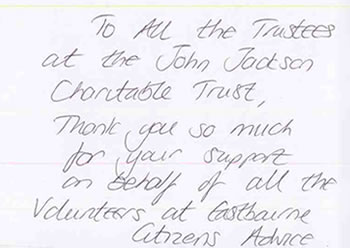 To All the Trustees
at the John Jackson
Charitable Trust,
Thank you so much
for your support
on behalf of all the
Volunteers at Eastbourne
Citizens Advice